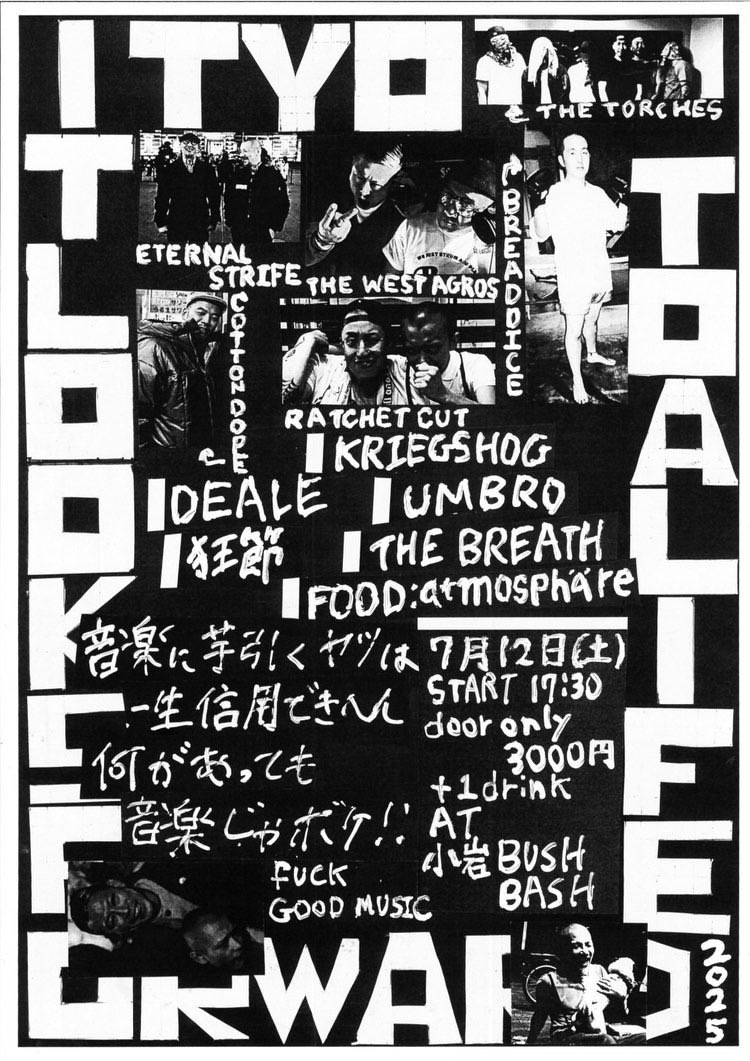 ITYO
IT LOOKS FORWARD
TO A LIFE
THE TORCHES
BREADDICE
ETERNAL
STRIFE
THE WEST AGROS
COTTONDOPE
RATCHET CUT
KRIEGSHOG
DEALE
UMBRO
狂節
THE BREATH
FOOD:atmosphäre
音楽に芋引くヤツは
一生信用できへん
何があっても
音楽じゃボケ!!
7月12日(土)
START 17:30
door only
3000円
+1drink
AT
小岩 BUSH
BASH
FUCK
GOOD MUSIC
2025